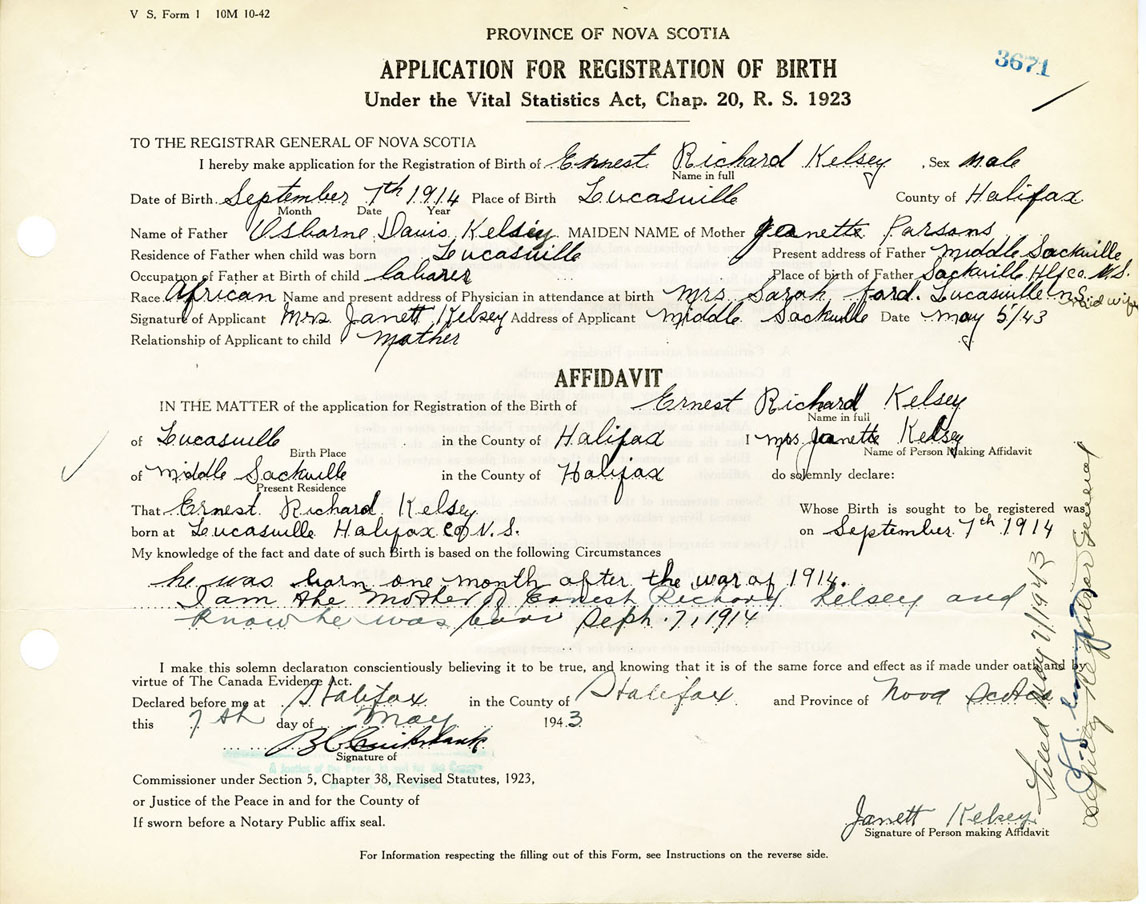 V S. Form 1 10M 10-42
PROVINCE OF NOVA SCOTIA
3671
APPLICATION FOR REGISTRATION OF BIRTH
Under the Vital Statistics Act, Chap. 20, R. S. 1923
TO THE REGISTRAR GENERAL OF NOVA SCOTIA
I hereby make application for the Registration of Birth of Ernest Richard Kelsey . Sex male
Name in full
Date of Birth. September 7th 1914 Place of Birth Lucasville County of Halifax
Month Date Year
Name of Father Osborne Davis Kelsey MAIDEN NAME of Mother Jeanette Parsons
Residence of Father when child was born Lucasville Present address of Father Middle Sackville
Occupation of Father at Birth of child Laborer Place of Birth of Father Sackville Hfx co. N.S.
Race African Name and present address of Physician in attendance at birth Mrs. Sarah Ford. Lucasville N.S. mid wife
Signature of Applicant Mrs Janett Kelsey Address of Applicant Middle Sackville Date May 5/43
Relationship of Applicant to child Mother
AFFIDAVIT
IN THE MATTER of the application for Registration of the Birth of Ernest Richard Kelsey
Name in full
of Lucasville in the County of Halifax I Mrs. Janette Kelsey
Birth Place Name of Person Making Affidavit
of Middle Sackville in the County of Halifax do solemnly declare:
Present Residence
That Ernest Richard Kelsey Whose Birth is sought to be registered was
born at Lucasville Halifax co N.S. on September 7th 1914
My knowledge of the fact and date of such Birth is based on the following Circumstances
he was born one month after the war of 1914.
I am the Mother of Ernest Richard Kelsey and
know he was born Seph. 7, 1914
I make this solemn declaration conscientiously believing it to be true, and knowing that it is of the same force and effect as if made under oath and by
virtue of The Canada Evidence Act.
Declared before me at Halifax in the County of Halifax and Province of Nova Scotia
this 7th day of May 1943
Signature of
Commissioner under Section 5, Chapter 38, Revised Statutes, 1923,
or Justice of the Peace in and for the County of
If sworn before a Notary Public affix seal.
Janett Kelsey
Signature of Person making Affidavit
For Information respecting the filling out of this Form, see Instructions on the reverse side.
Filed May 7/1943
Deputy Registrar General